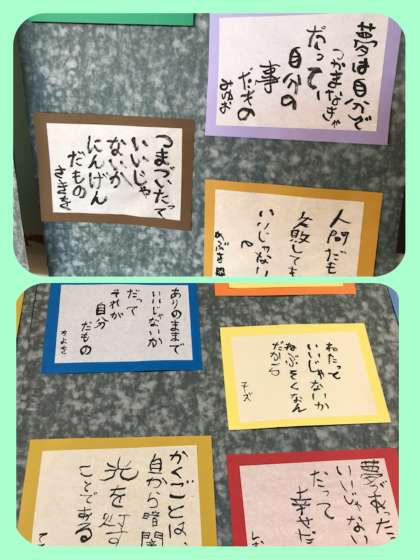 夢は自分で
つかまなきゃ
だって、
自分の
事
だもの
みゆお
つまづいたって
いいじゃ
ないか
にんげん
だもの
さきを
人間だも
失敗しても
いいじゃない
めぶき
ありのままで
いいじゃないか
だって
それが
自分
だもの
かよを
ねたって
いいじゃないか
ねぶそくなん
だから
チーズ
かくごとは、
自から暗闇
光を
ことである
夢
いいじゃない
だって
幸せだ